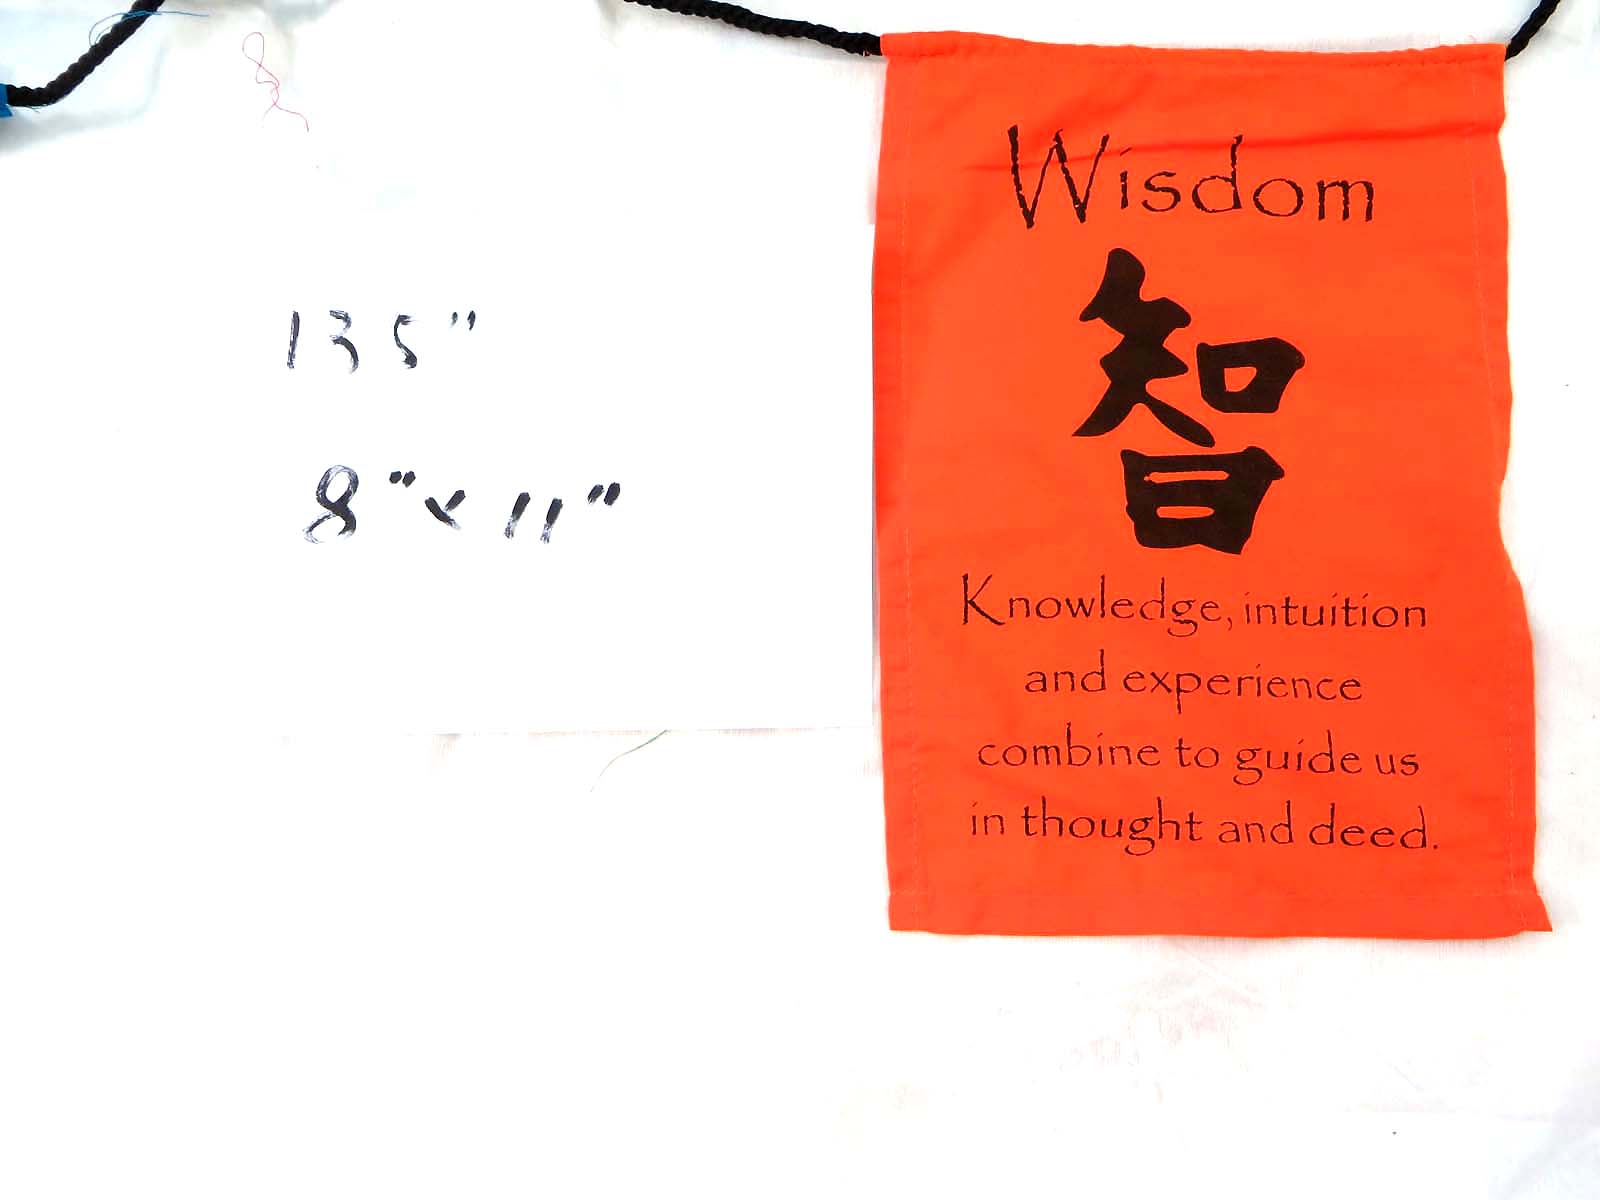 135"
8" x 11"
Wisdom
智
Knowledge, intuition
and experience
combine to guide us
in thought and deed.